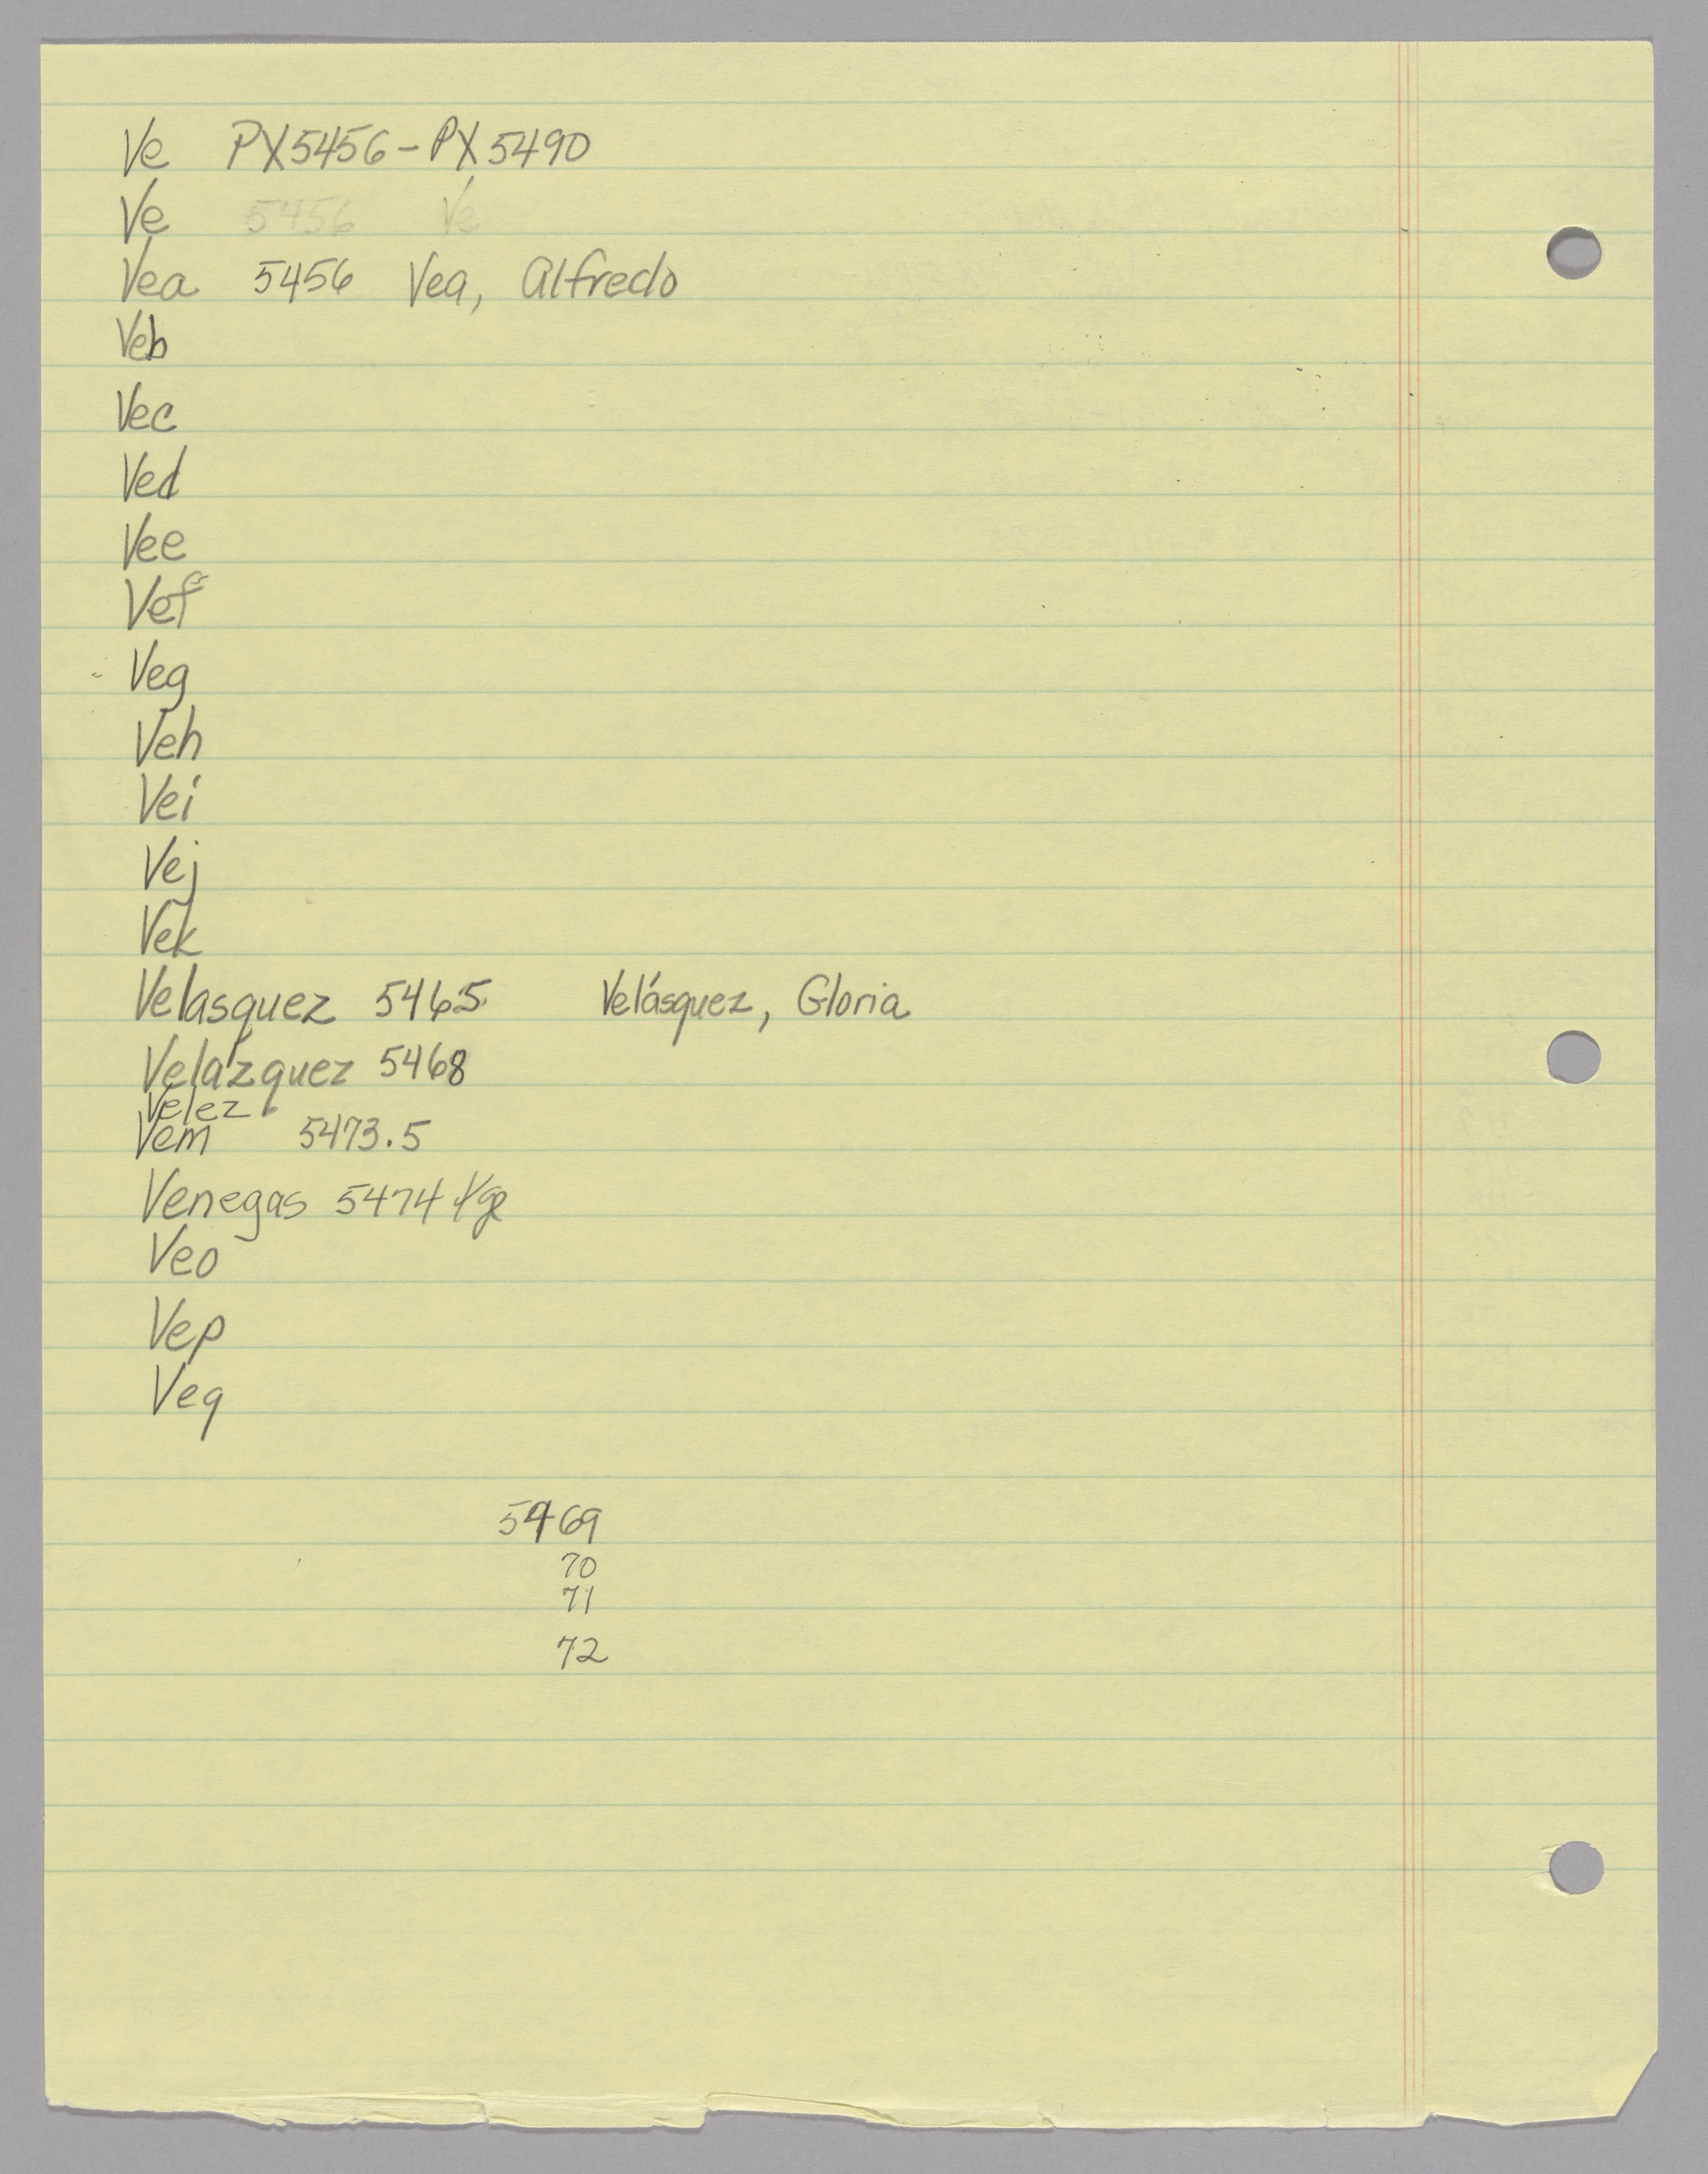 Ve PX5456-PX5490
Ve 5456 Ve
Vea 5456 Vea, Alfredo
Veb
Vec
Ved
Vee
Vef
Veg
Veh
Vei
Vej
Vek
Velasquez 5465 Velásquez, Gloria
Velázquez 5468
Velez
Vem 5473.5
Venegas 5474
Veo
Vep
Veq
5469
70
71
72